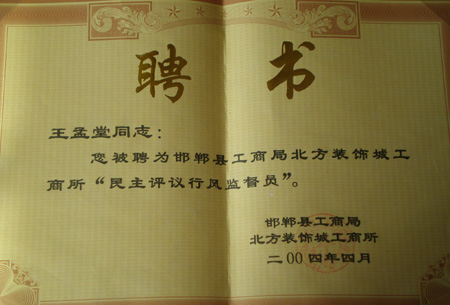 聘 书
王孟堂同志：
您被聘为邯郸县工商局北方装饰城工
商所“民主评议行风监督员”。
邯郸县工商局
北方装饰城工商所
二00四年四月